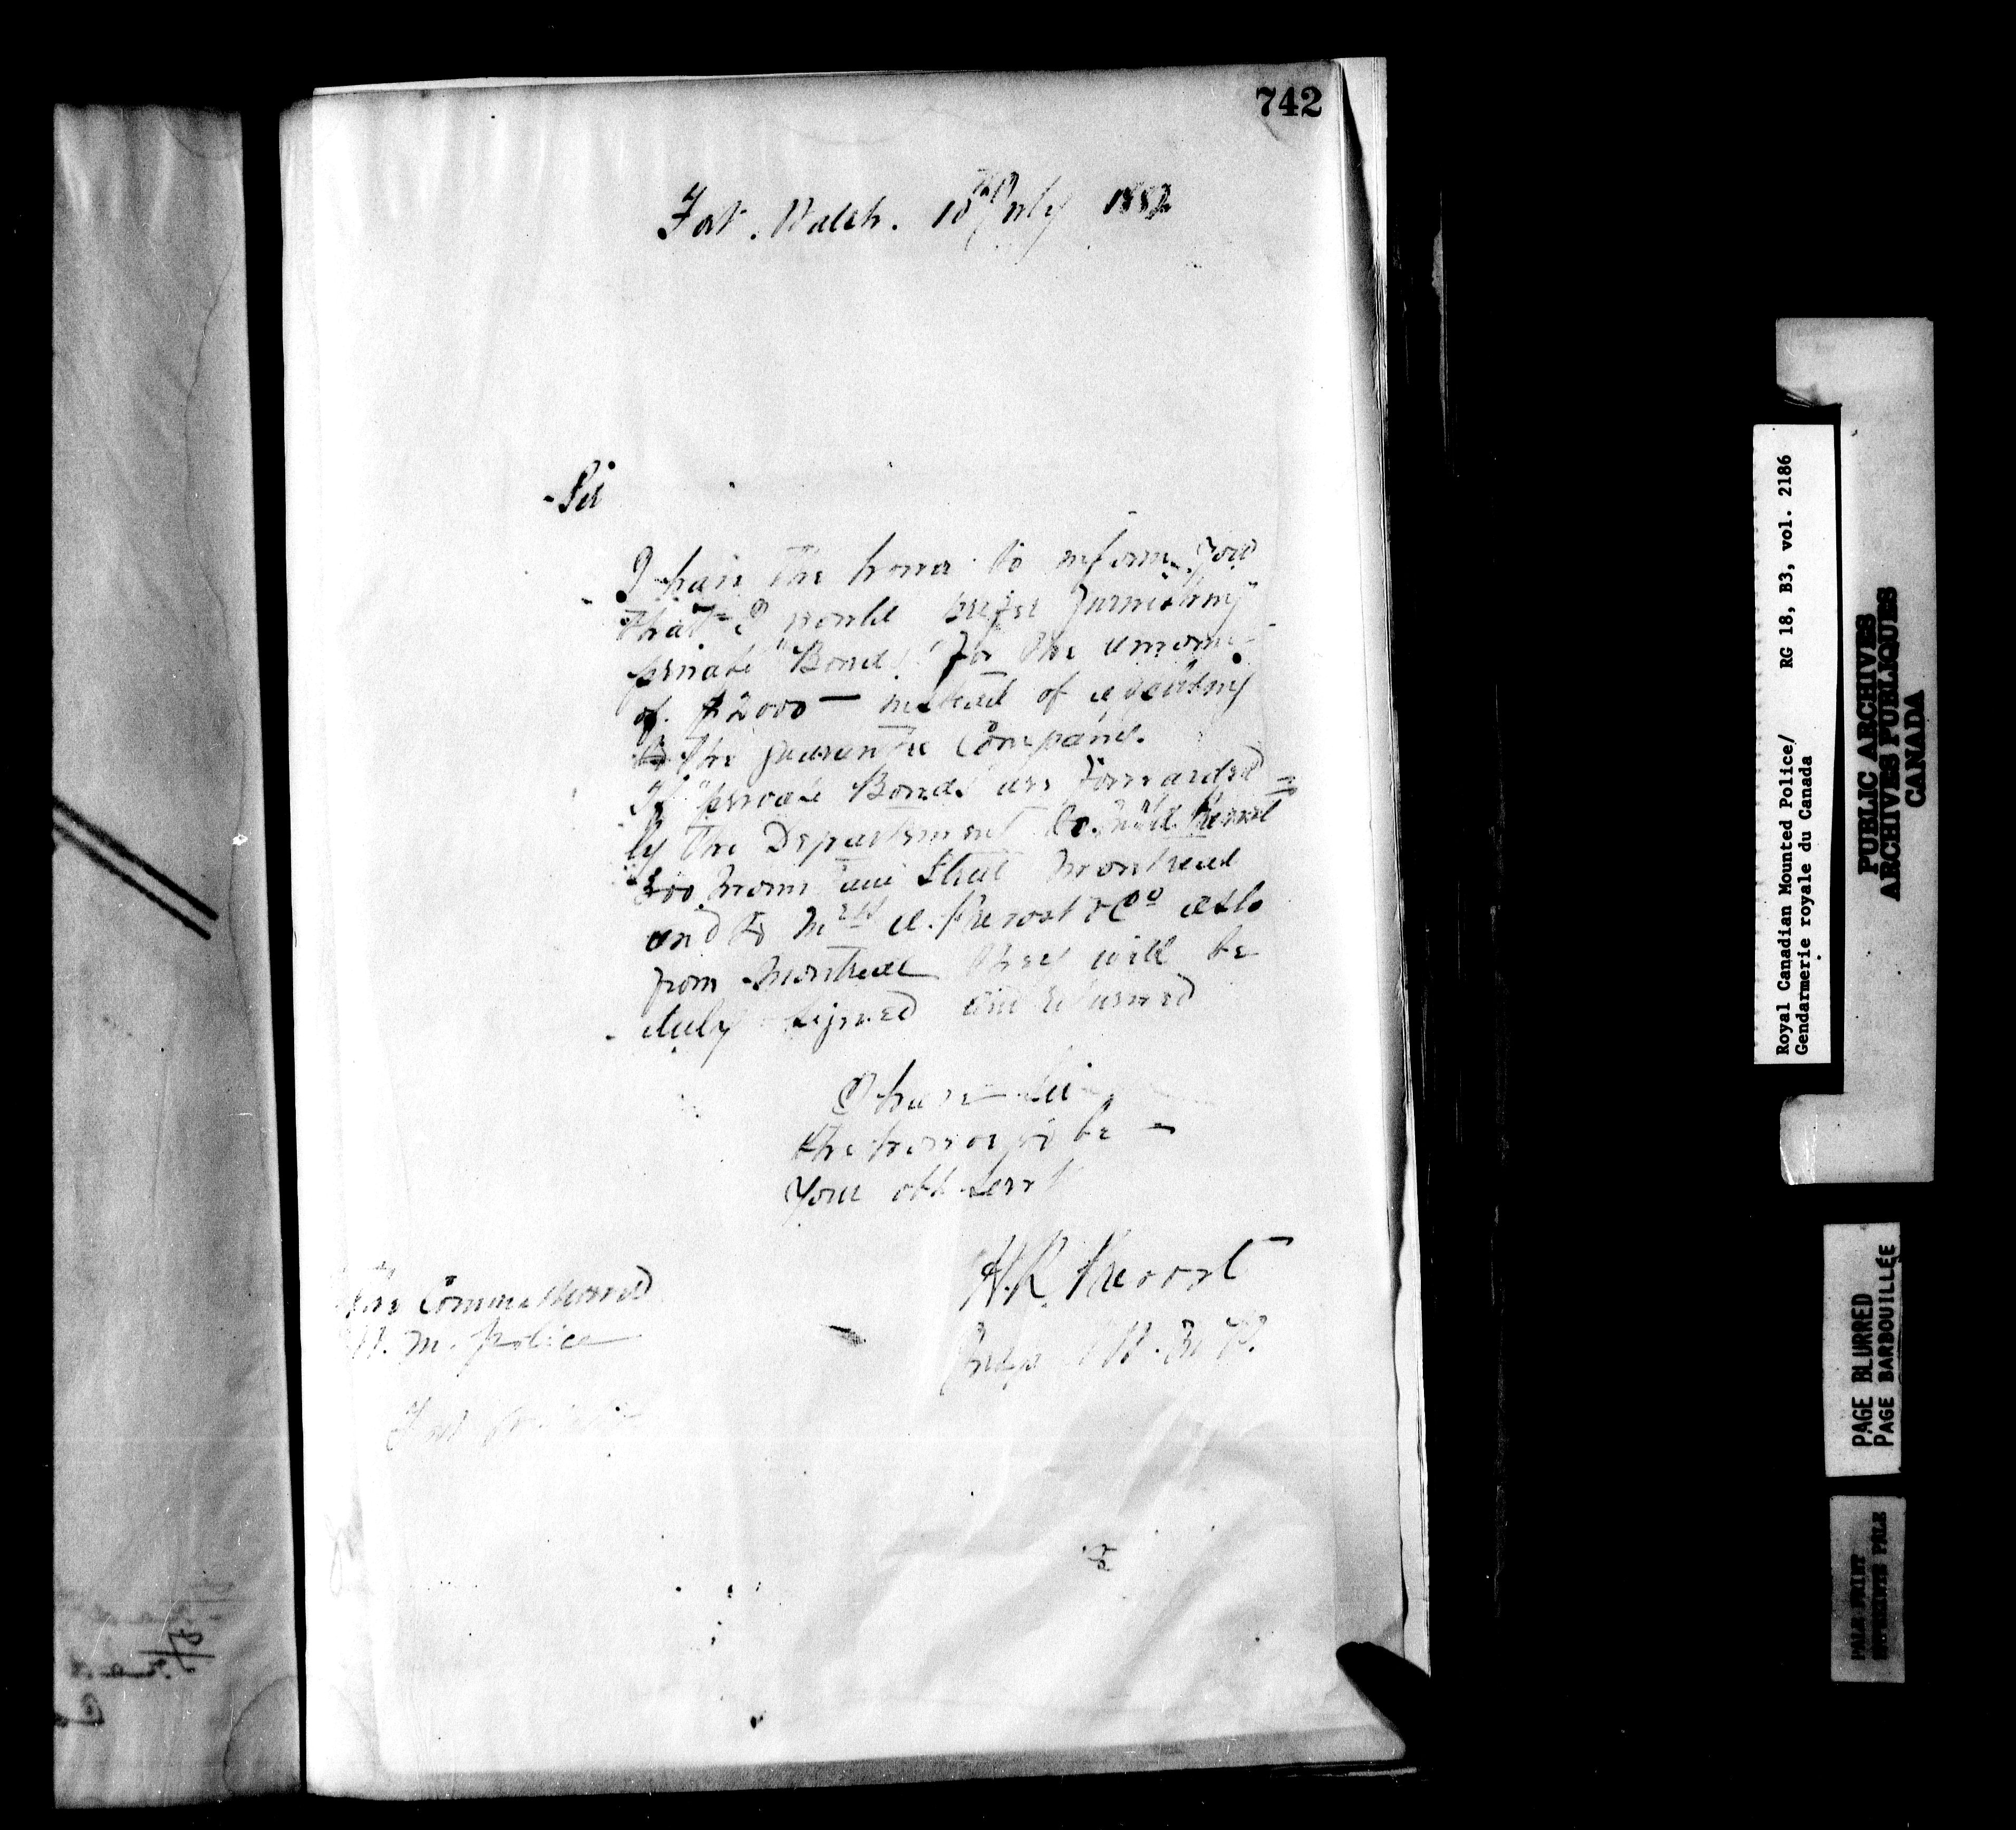 742
Fort. Walsh. 18th July 1882
Sir
I have the honor to inform you
that I would prefer furnishing
private "Bonds" for the amount
of $2000 — instead of
to the guarantee Company.
If "private Bonds" are forwarded
by the Department to Prevost
300 Street Montreal
and to Mrs A. Prevost & Co also
from Montreal they will be
duly signed and returned
I have Sir
the honor to be
Your obt Servt
A.R. Prevost
Insp N.W.M.P.
The Commissioner
N. W. M. Police
Fort
Royal Canadian Mounted Police/ RG 18, B3, vol. 2186
Gendarmerie royale du Canada
PUBLIC ARCHIVES
ARCHIVES PUBLIQUES
CANADA
PAGE BLURRED
PAGE BARBOUILLÉE
PALE PRINT
IMPRESSION PALE